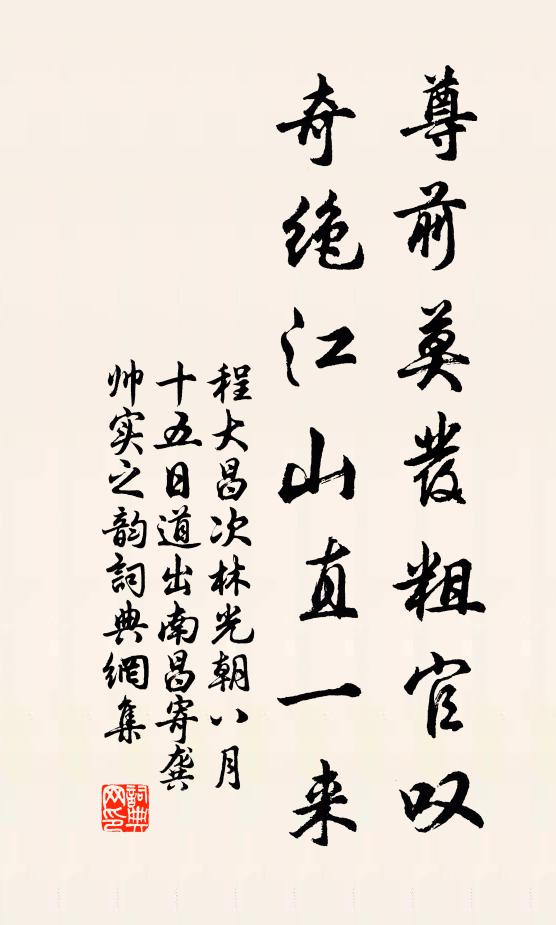 尊前莫发粗官叹
奇绝江山直一来
程大昌次林光朝八月
十五日道出南昌寄龚
帅实之韵詞典網集
詞典
网印